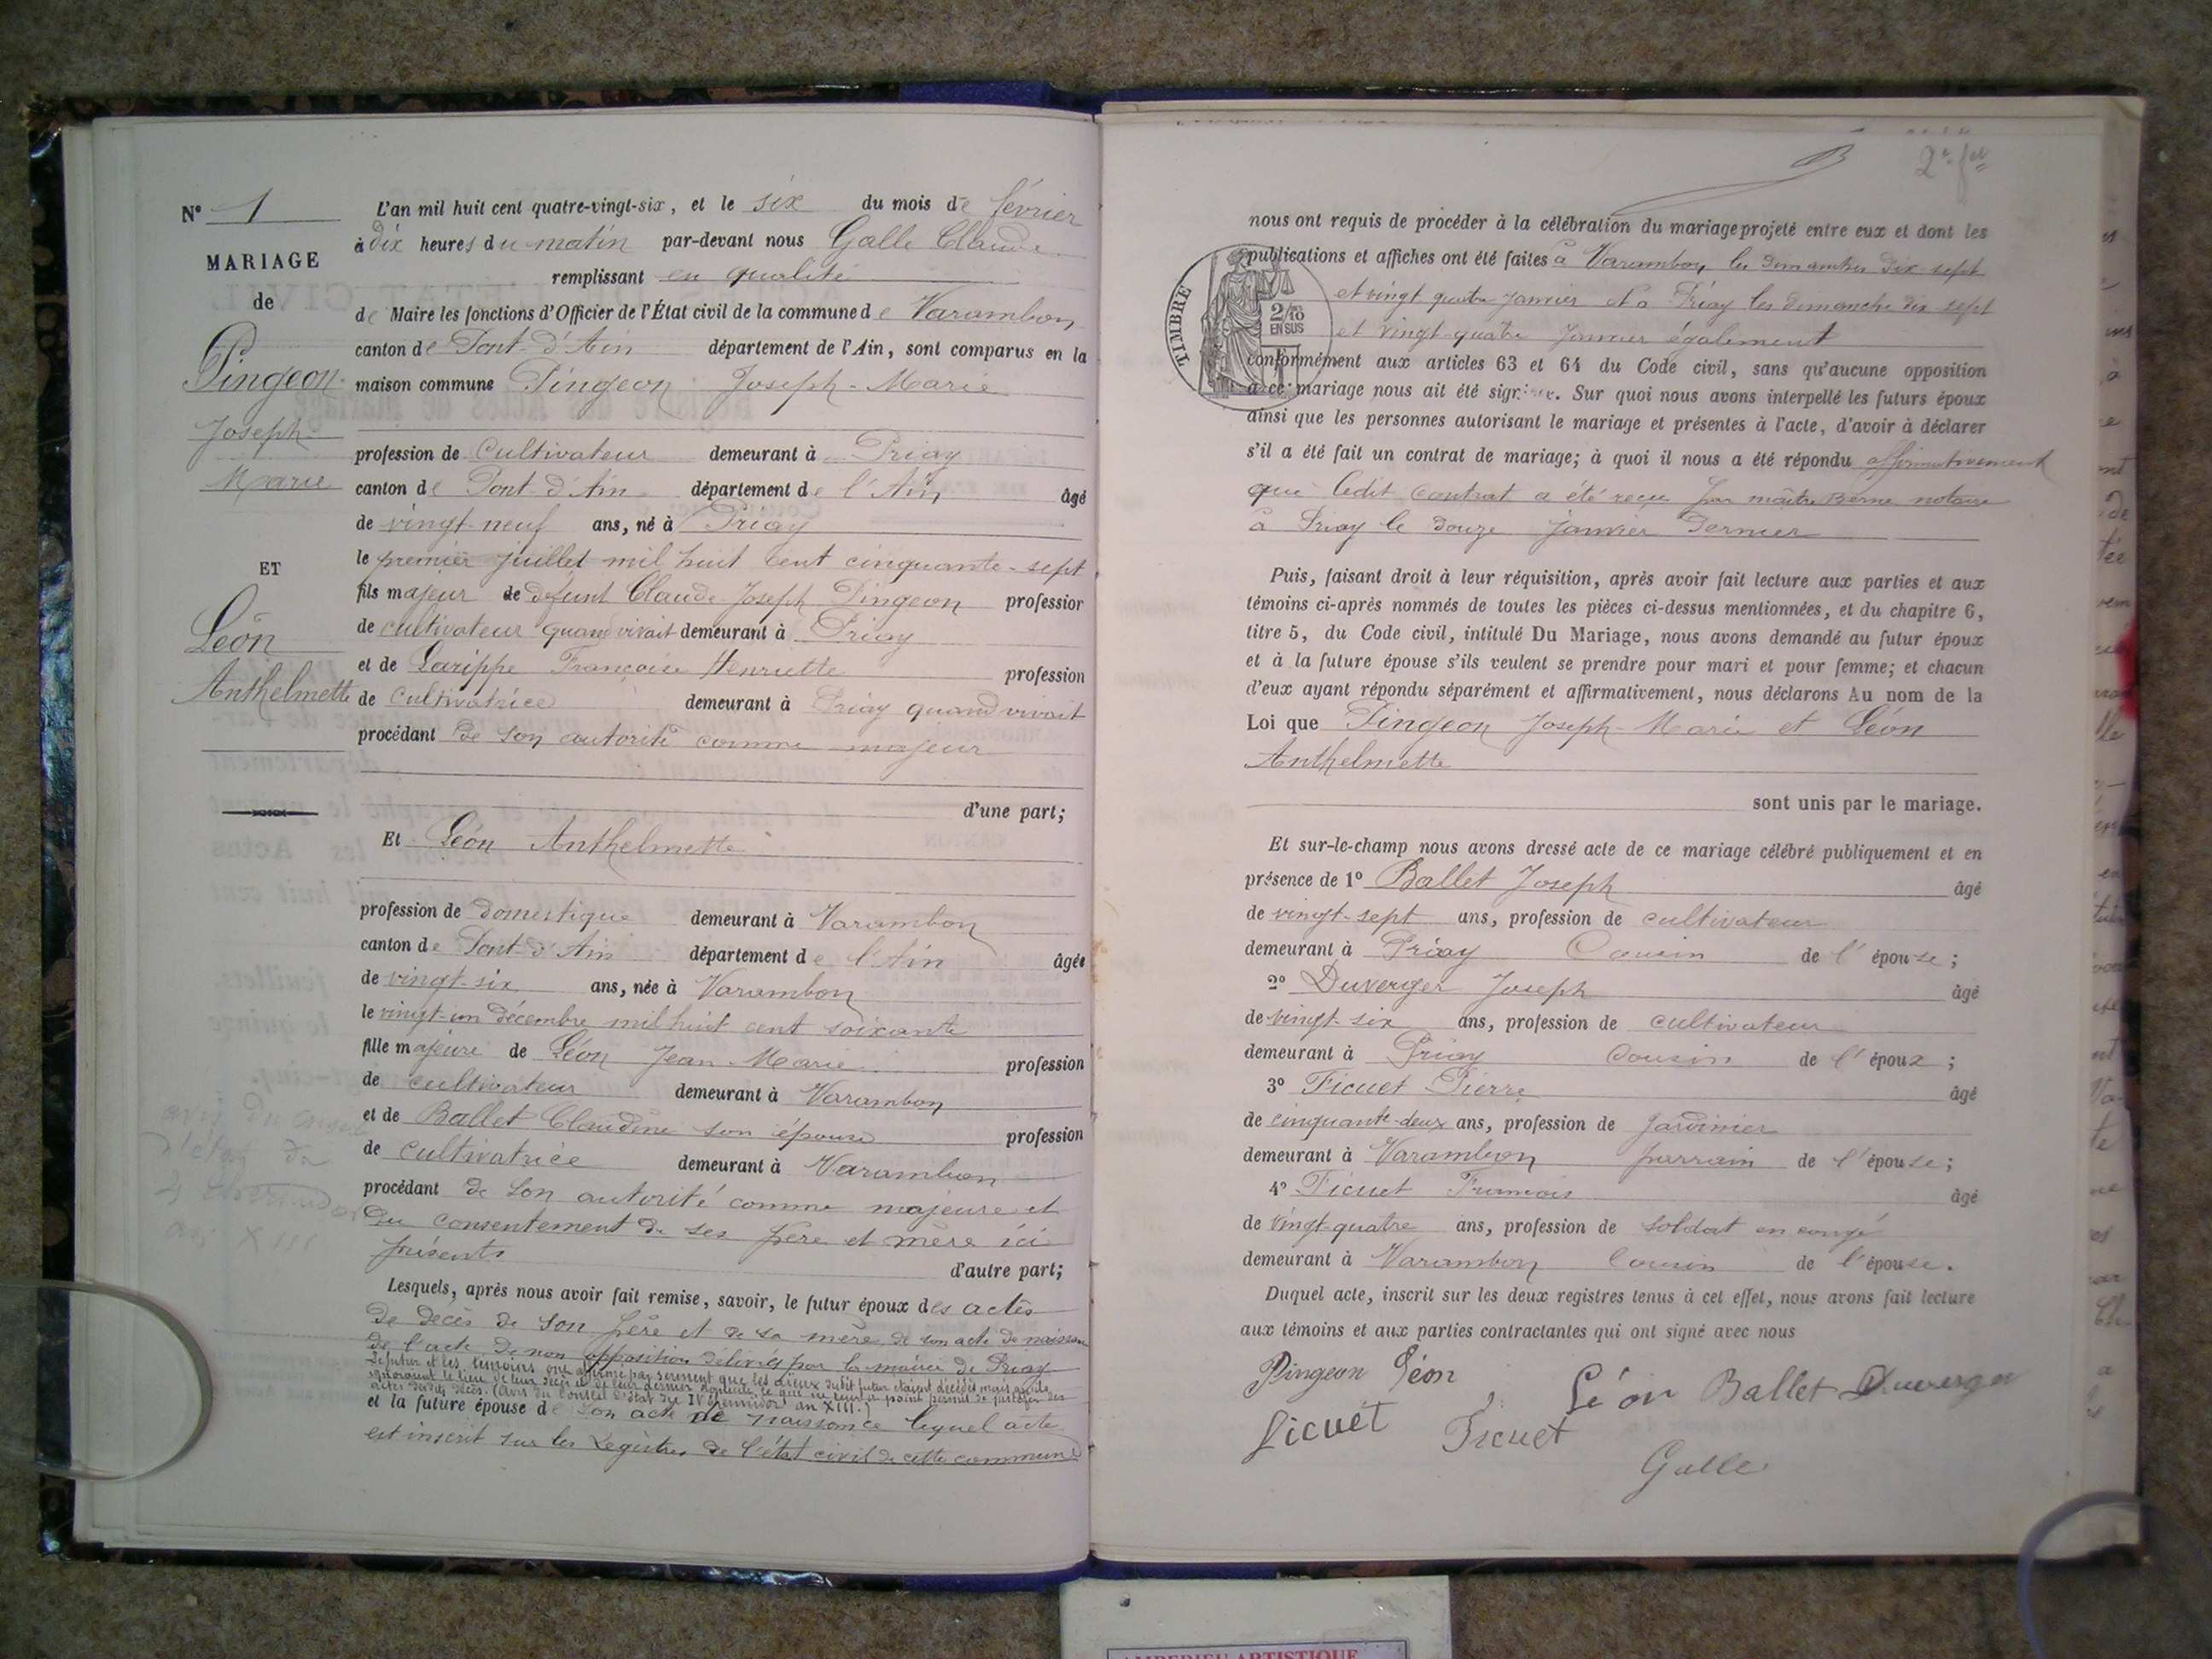 N° 1
MARIAGE
de
Pingeon
Joseph
Marie
ET
Léon
Anthelmette
avis du conseil
d'état du
4 thermidor
an XIII
L'an mil huit cent quatre-vingt-six, et le six du mois de février
à dix heures du matin par-devant nous Galle Claude
remplissant en qualité
de Maire les fonctions d'Officier de l'État civil de la commune de Varambon
canton de Pont-d'Ain département de l'Ain, sont comparus en la
maison commune Pingeon Joseph-Marie
profession de cultivateur demeurant à Priay
canton de Pont-d'Ain département de l'Ain âgé
de vingt-neuf ans, né à Priay
le premier juillet mil huit cent cinquante-sept
fils majeur de défunt Claude-Joseph Pingeon profession
de cultivateur quand vivait demeurant à Priay
et de Larippe Françoise Henriette profession
de cultivatrice demeurant à Priay quand vivait
procédant de son autorité comme majeur
d'une part;
Et Léon Anthelmette
profession de domestique demeurant à Varambon
canton de Pont-d'Ain département de l'Ain âgée
de vingt-six ans, née à Varambon
le vingt-un décembre mil huit cent soixante
fille majeure de Léon Jean-Marie profession
de cultivateur demeurant à Varambon
et de Ballet Claudine son épouse profession
de cultivatrice demeurant à Varambon
procédant de son autorité comme majeure et
du consentement de ses père et mère ici
présents
d'autre part;
Lesquels, après nous avoir fait remise, savoir, le futur époux des actes
de décès de son père et de sa mère, de son acte de naissance
de l'acte de non opposition délivrés par la mairie de Priay
Le futur et les témoins ont affirmé par serment que les aïeux dudit futur étaient décédés mais qu'ils
ignoraient le lieu de leur décès et de leur dernier domicile, ce que ne leur a point permis de justifier des
actes desdits décès. (Avis du Conseil d'état du IV thermidor an XIII.)
et la future épouse de son acte de naissance lequel acte
est inscrit sur les Registres de l'état civil de cette commune
2e fet
nous ont requis de procéder à la célébration du mariage projeté entre eux et dont les
publications et affiches ont été faites à Varambon, les dimanches dix-sept
et vingt quatre janvier et à Priay les dimanche dix sept
et vingt-quatre janvier également
TIMBRE
2/10
EN SUS
conformément aux articles 63 et 64 du Code civil, sans qu'aucune opposition
à ce mariage nous ait été signifiée. Sur quoi nous avons interpellé les futurs époux
ainsi que les personnes autorisant le mariage et présentes à l'acte, d'avoir à déclarer
s'il a été fait un contrat de mariage; à quoi il nous a été répondu affirmativement
que ledit contrat a été reçu par maître Berne notaire
à Priay le douze janvier dernier
Puis, faisant droit à leur réquisition, après avoir fait lecture aux parties et aux
témoins ci-après nommés de toutes les pièces ci-dessus mentionnées, et du chapitre 6,
titre 5, du Code civil, intitulé Du Mariage, nous avons demandé au futur époux
et à la future épouse s'ils veulent se prendre pour mari et pour femme; et chacun
d'eux ayant répondu séparément et affirmativement, nous déclarons Au nom de la
Loi que Pingeon Joseph-Marie et Léon
Anthelmette
sont unis par le mariage.
Et sur-le-champ nous avons dressé acte de ce mariage célébré publiquement et en
présence de 1° Ballet Joseph âgé
de vingt-sept ans, profession de cultivateur
demeurant à Priay Cousin de l'épouse;
2° Duverger Joseph âgé
de vingt-six ans, profession de cultivateur
demeurant à Priay Cousin de l'époux;
3° Ficuet Pierre âgé
de cinquante-deux ans, profession de jardinier
demeurant à Varambon parrain de l'épouse;
4° Ficuet François âgé
de vingt-quatre ans, profession de soldat en congé
demeurant à Varambon Cousin de l'épouse.
Duquel acte, inscrit sur les deux registres tenus à cet effet, nous avons fait lecture
aux témoins et aux parties contractantes qui ont signé avec nous
Pingeon Léon Léon Ballet Duverger
Ficuet Ficuet
Galle
AMBERIEU ARTISTIQUE